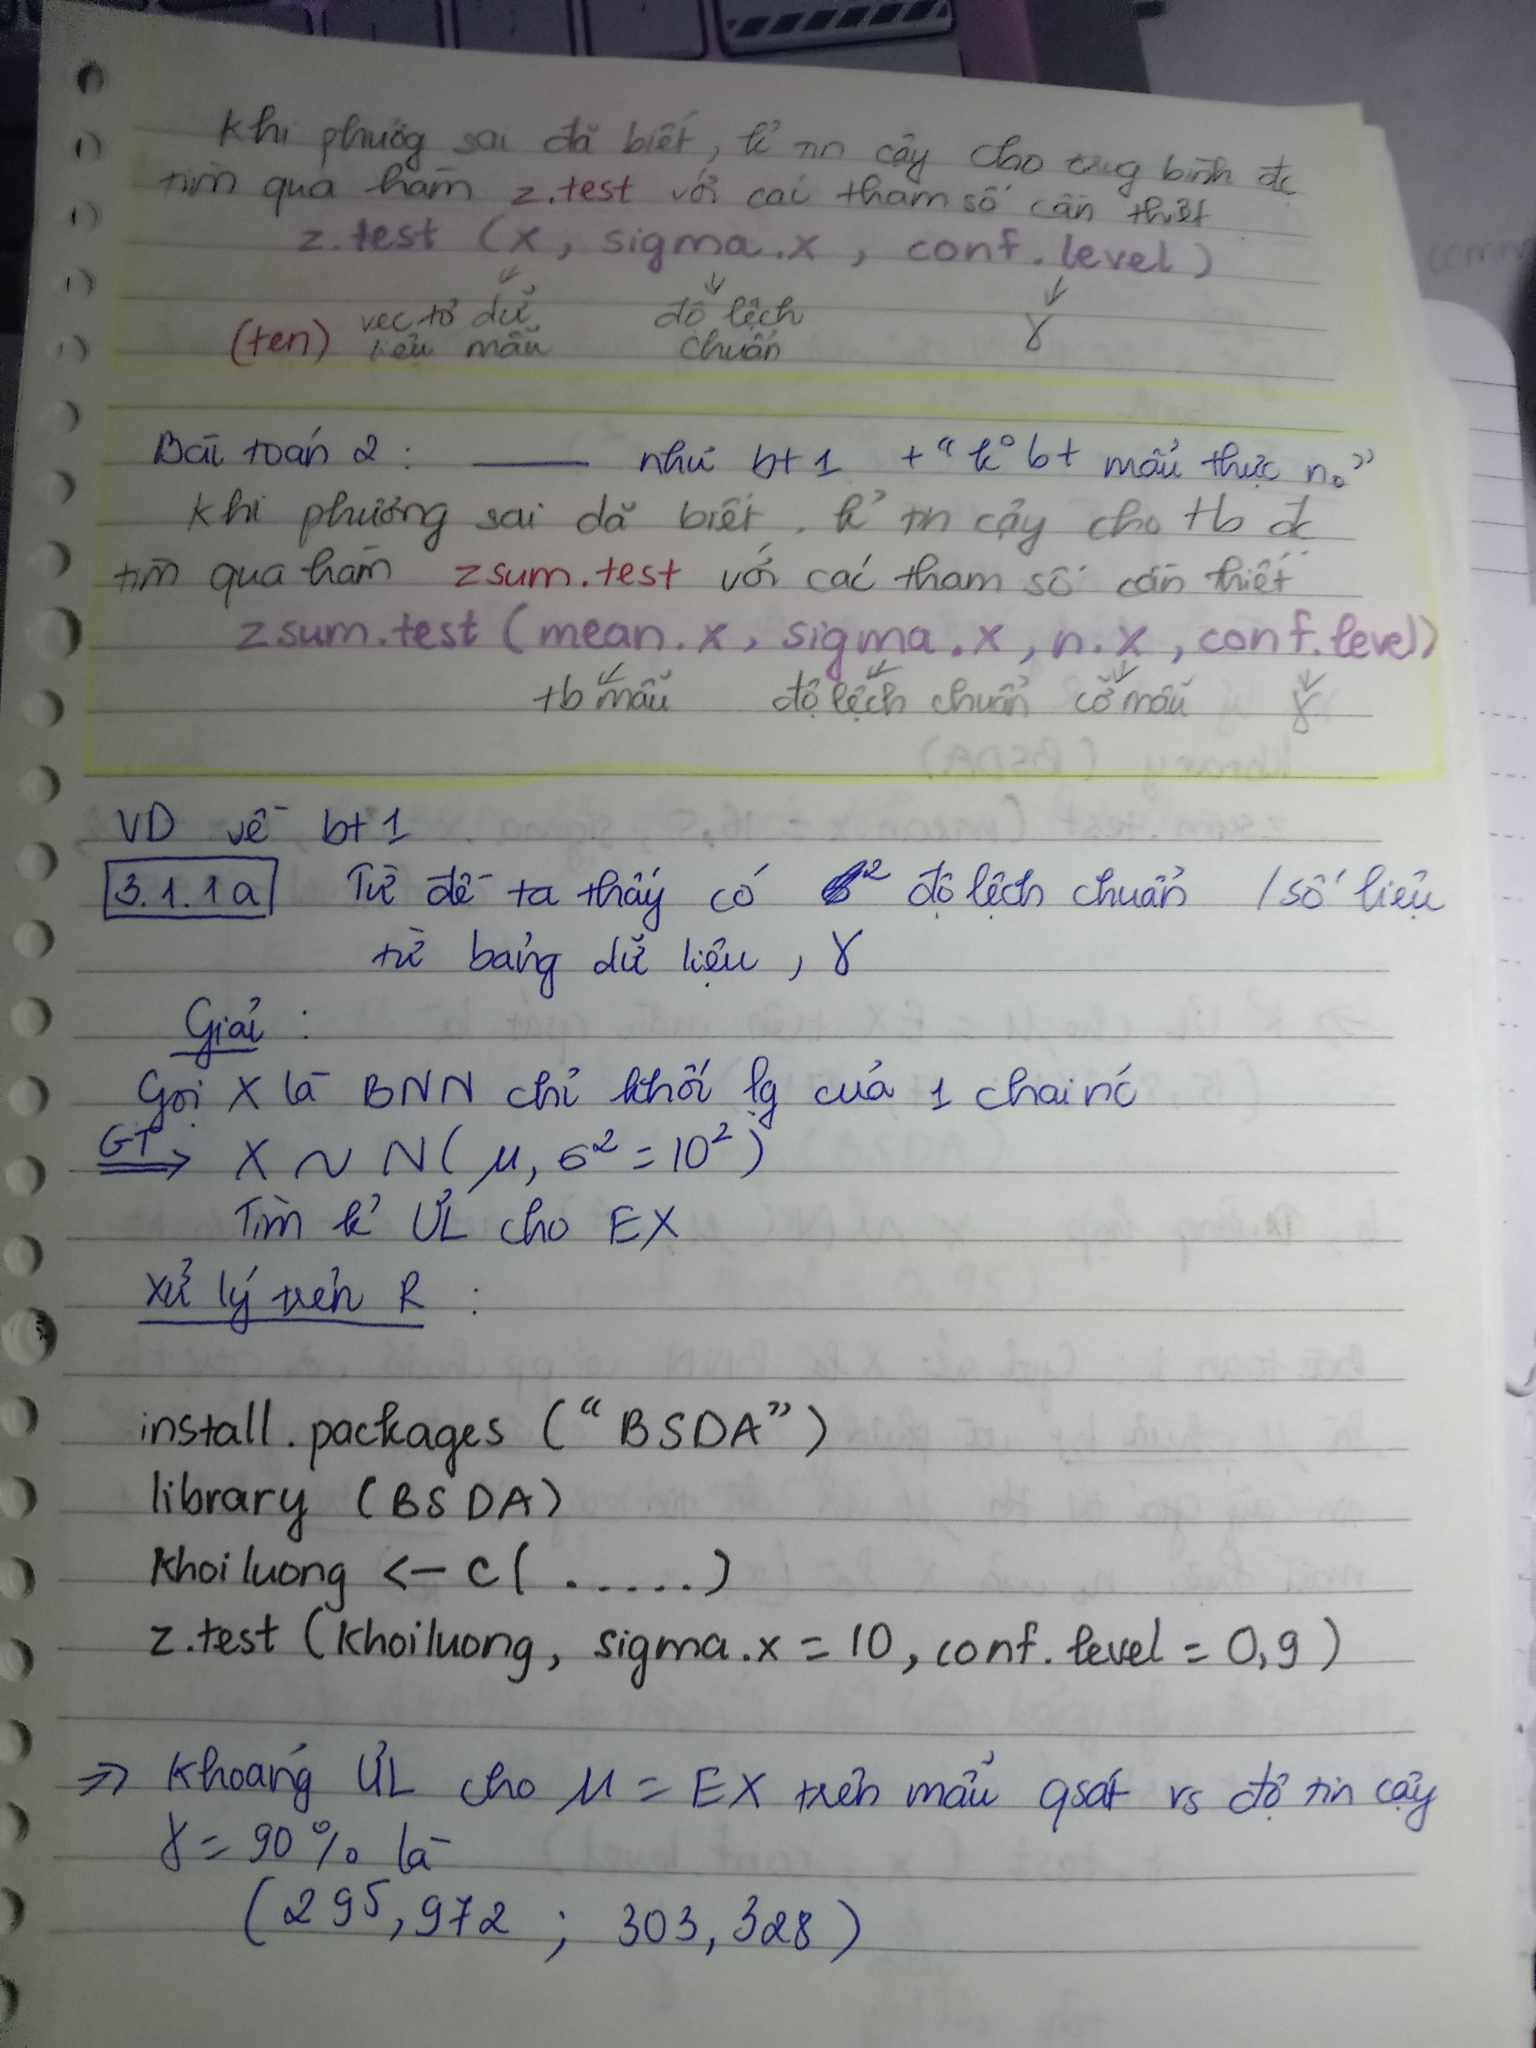 Khi phương sai đã biết, k̉ tin cậy cho trung bình đc
tìm qua hàm z.test với các tham số cần thiết
z.test (x, sigma.x, conf.level)
(tên) vectơ dữ độ lệch γ
liệu mẫu chuẩn
Bài toán 2: —— như bt1 + "k° bt mẫu thực n₀"
Khi phương sai đã biết, k̉ tin cậy cho tb đc
tìm qua hàm zsum.test với các tham số cần thiết
zsum.test (mean.x, sigma.x, n.x, conf.level)
tb mẫu độ lệch chuẩn cỡ mẫu γ
VD về bt1
3.1.1a Từ đề ta thấy có độ lệch chuẩn / số liệu
từ bảng dữ liệu, γ
Giải:
Gọi X là BNN chỉ khối lg của 1 chai nc
GT ⇒ X ~ N(μ, σ² = 10²)
Tìm k̉ ƯL cho EX
Xử lý trên R:
install.packages ("BSDA")
library (BSDA)
Khoiluong <- c(......)
z.test (Khoiluong, sigma.x = 10, conf.level = 0,9)
⇒ Khoảng ƯL cho μ = EX trên mẫu qsát vs độ tin cậy
γ = 90% là
(295,972 ; 303,328)